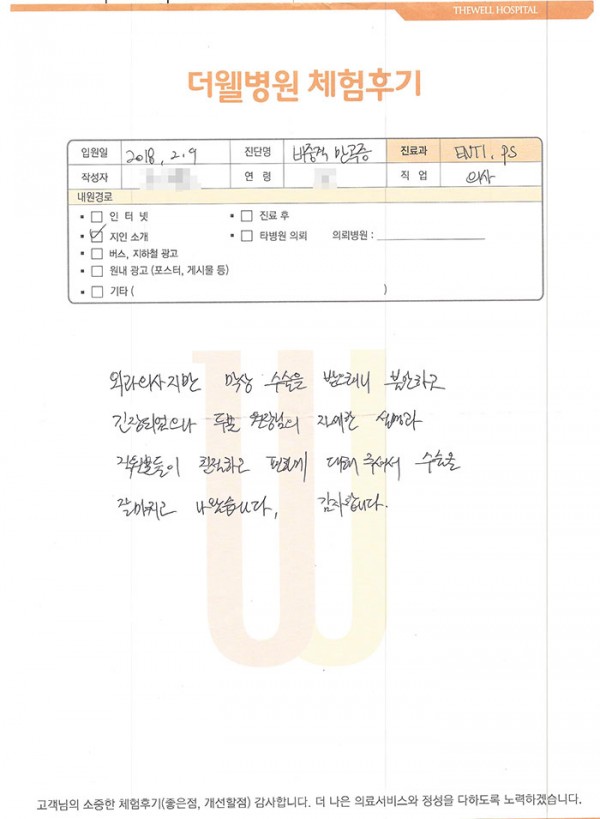 THEWELL HOSPITAL
더웰병원 체험후기
입원일 2018. 2. 9 진단명 비중격 만곡증 진료과 ENT1, PS
작성자 연 령 직 업 의사
내원경로
인 터 넷 진료 후
지인 소개 타병원 의뢰 의뢰병원 :
버스, 지하철 광고
원내 광고 (포스터, 게시물 등)
기타 ( )
외과의사지만 막상 수술을 받으려니 불안하고
긴장되었으나 두분 원장님의 자세한 설명과
직원분들이 친절하고 편하게 대해 주셔서 수술을
잘마치고 나왔습니다. 감사합니다.
고객님의 소중한 체험후기(좋은점, 개선할점) 감사합니다. 더 나은 의료서비스와 정성을 다하도록 노력하겠습니다.